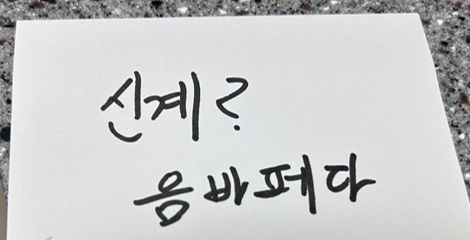 신계?
음바페다